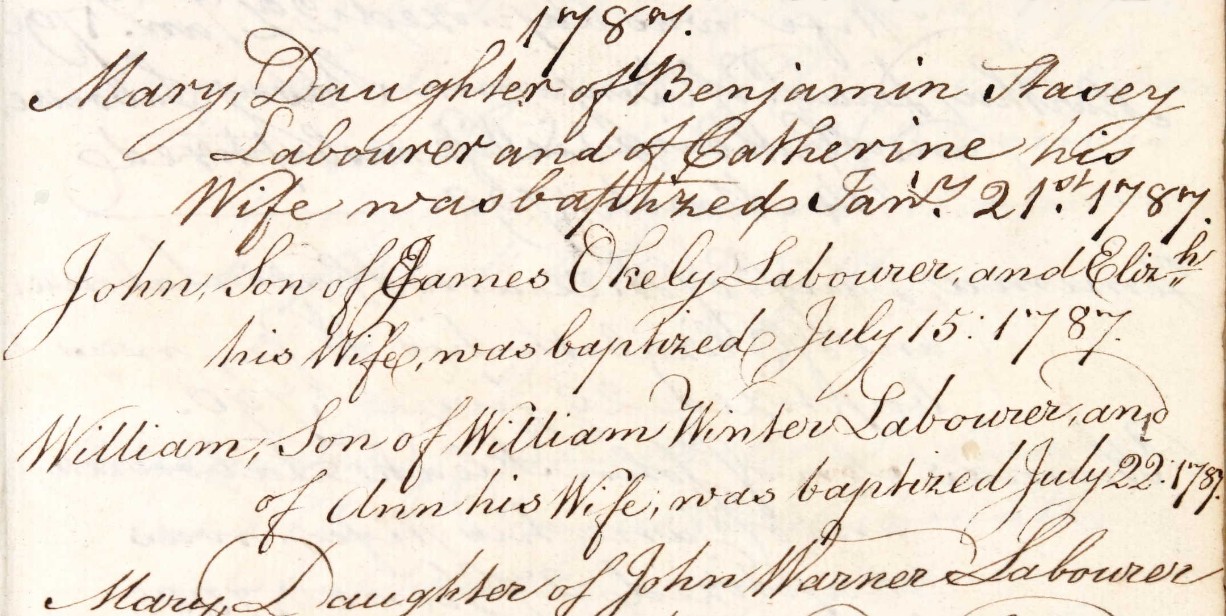 1787.
Mary, Daughter of Benjamin Stasey
Labourer and of Catherine his
Wife was baptized Jan.y 21st. 1787.
John, Son of James Okely Labourer, and Eliz.h
his Wife, was baptized July 15: 1787.
William, Son of William Winter Labourer, and
of Ann his Wife, was baptized July 22: 1787.
Mary, Daughter of John Warner Labourer